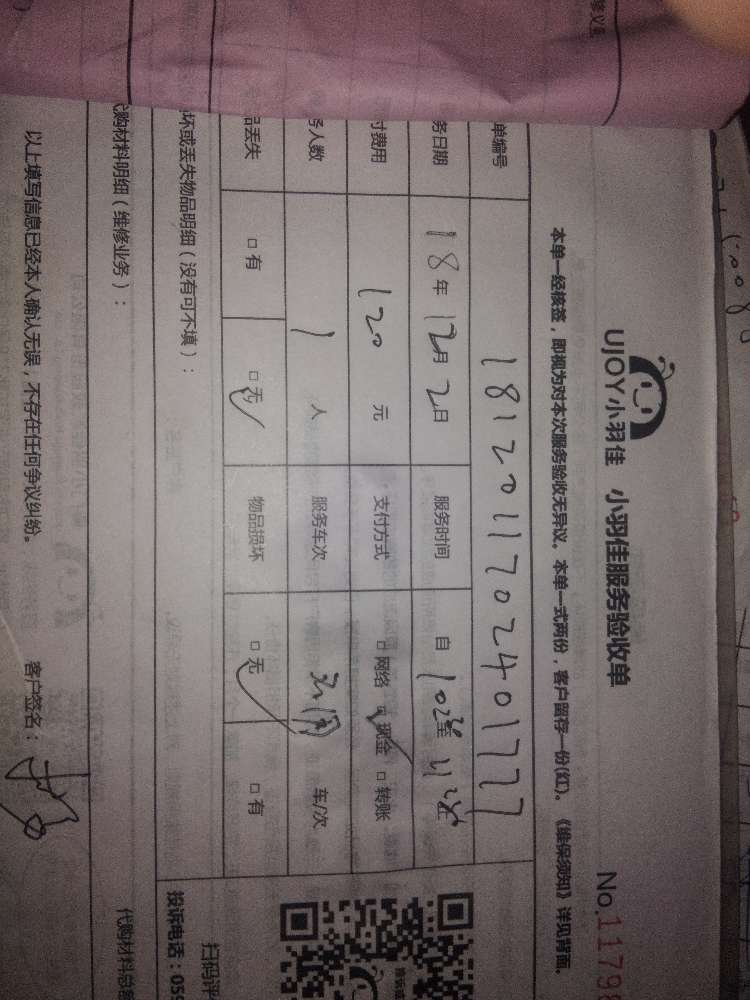 UJOY小羽佳 小羽佳服务验收单 No.1179
本单一经核签，即视为对本次服务验收无异议。本单一式两份，客户留存一份(红)。《维保须知》详见背面。
单编号 181201170240177
务日期 18年12月2日 服务时间 自 至
付费用 120 元 支付方式 □网络 □现金 □转账
务人数 1 人 服务车次 车/次
品丢失 □有 □无 物品损坏 □无 □有
坏或丢失物品明细（没有可不填）：
代购材料明细（维修业务）： 代购材料总
以上填写信息已经本人确认无误，不存在任何争议纠纷。 客户签名：
扫码评
投诉电话：059